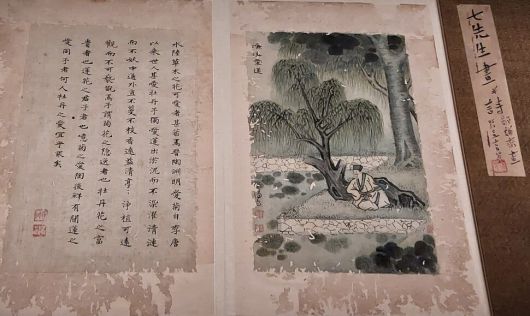 七先生畫
濂溪愛蓮
水陸草木之花可愛者甚蕃晉陶淵明愛菊自李唐
以來世人甚愛牡丹予獨愛蓮出淤泥而不染濯清漣
而不妖中通外直不蔓不枝香遠益清亭〻淨植可遠
觀而不可褻翫焉予謂菊花之隱逸者也牡丹花之富
貴者也蓮花之君子者也噫菊之愛陶後鮮有聞蓮之
愛同予者何人牡丹之愛宜乎眾矣